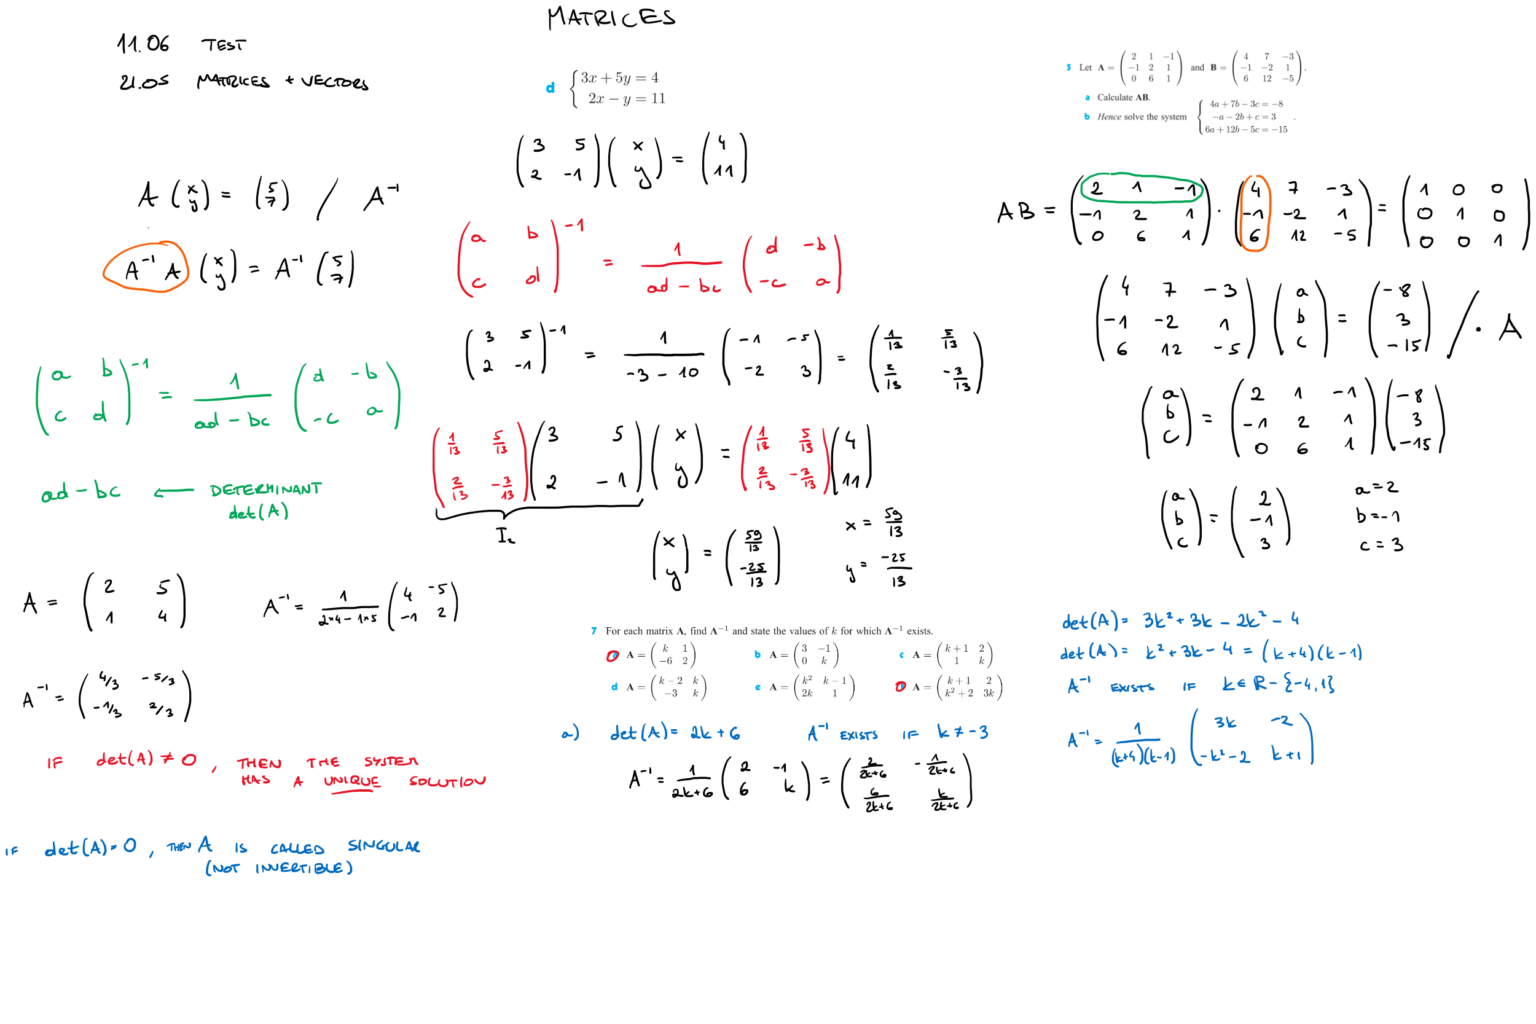 MATRICES
11.06 TEST
21.05 MATRICES + VECTORS
A (x y) = (5 7) / A⁻¹
A⁻¹ A (x y) = A⁻¹ (5 7)
(a b; c d)⁻¹ = 1/(ad - bc) (d -b; -c a)
ad - bc ← DETERMINANT
det(A)
A = (2 5; 1 4) A⁻¹ = 1/(2*4 - 1*5) (4 -5; -1 2)
A⁻¹ = (4/3 -5/3; -1/3 2/3)
IF det(A) ≠ 0, THEN THE SYSTEM
HAS A UNIQUE SOLUTION
IF det(A) = 0, THEN A IS CALLED SINGULAR
(NOT INVERTIBLE)
d { 3x + 5y = 4
2x - y = 11
(3 5; 2 -1) (x y) = (4 11)
(a b; c d)⁻¹ = 1/(ad - bc) (d -b; -c a)
(3 5; 2 -1)⁻¹ = 1/(-3 - 10) (-1 -5; -2 3) = (1/13 5/13; 2/13 -3/13)
(1/13 5/13; 2/13 -3/13) (3 5; 2 -1) (x y) = (1/13 5/13; 2/13 -3/13) (4 11)
I₂
(x y) = (59/13 -25/13) x = 59/13
y = -25/13
7 For each matrix A, find A⁻¹ and state the values of k for which A⁻¹ exists.
A = (k 1; -6 2) b A = (3 -1; 0 k) c A = (k+1 2; 1 k)
d A = (k-2 k; -3 k) e A = (k² k-1; 2k 1) A = (k+1 2; k²+2 3k)
a) det(A) = 2k + 6 A⁻¹ EXISTS IF k ≠ -3
A⁻¹ = 1/(2k+6) (2 -1; 6 k) = (2/(2k+6) -1/(2k+6); 6/(2k+6) k/(2k+6))
5 Let A = (2 1 -1; -1 2 1; 0 6 1) and B = (4 7 -3; -1 -2 1; 6 12 -5).
a Calculate AB.
b Hence solve the system { 4a + 7b - 3c = -8
-a - 2b + c = 3
6a + 12b - 5c = -15 .
AB = (2 1 -1; -1 2 1; 0 6 1) · (4 7 -3; -1 -2 1; 6 12 -5) = (1 0 0; 0 1 0; 0 0 1)
(4 7 -3; -1 -2 1; 6 12 -5) (a b c) = (-8 3 -15) / · A
(a b c) = (2 1 -1; -1 2 1; 0 6 1) (-8 3 -15)
(a b c) = (2 -1 3) a = 2
b = -1
c = 3
det(A) = 3k² + 3k - 2k² - 4
det(A) = k² + 3k - 4 = (k+4)(k-1)
A⁻¹ EXISTS IF k ∈ R - {-4, 1}
A⁻¹ = 1/((k+4)(k-1)) (3k -2; -k²-2 k+1)